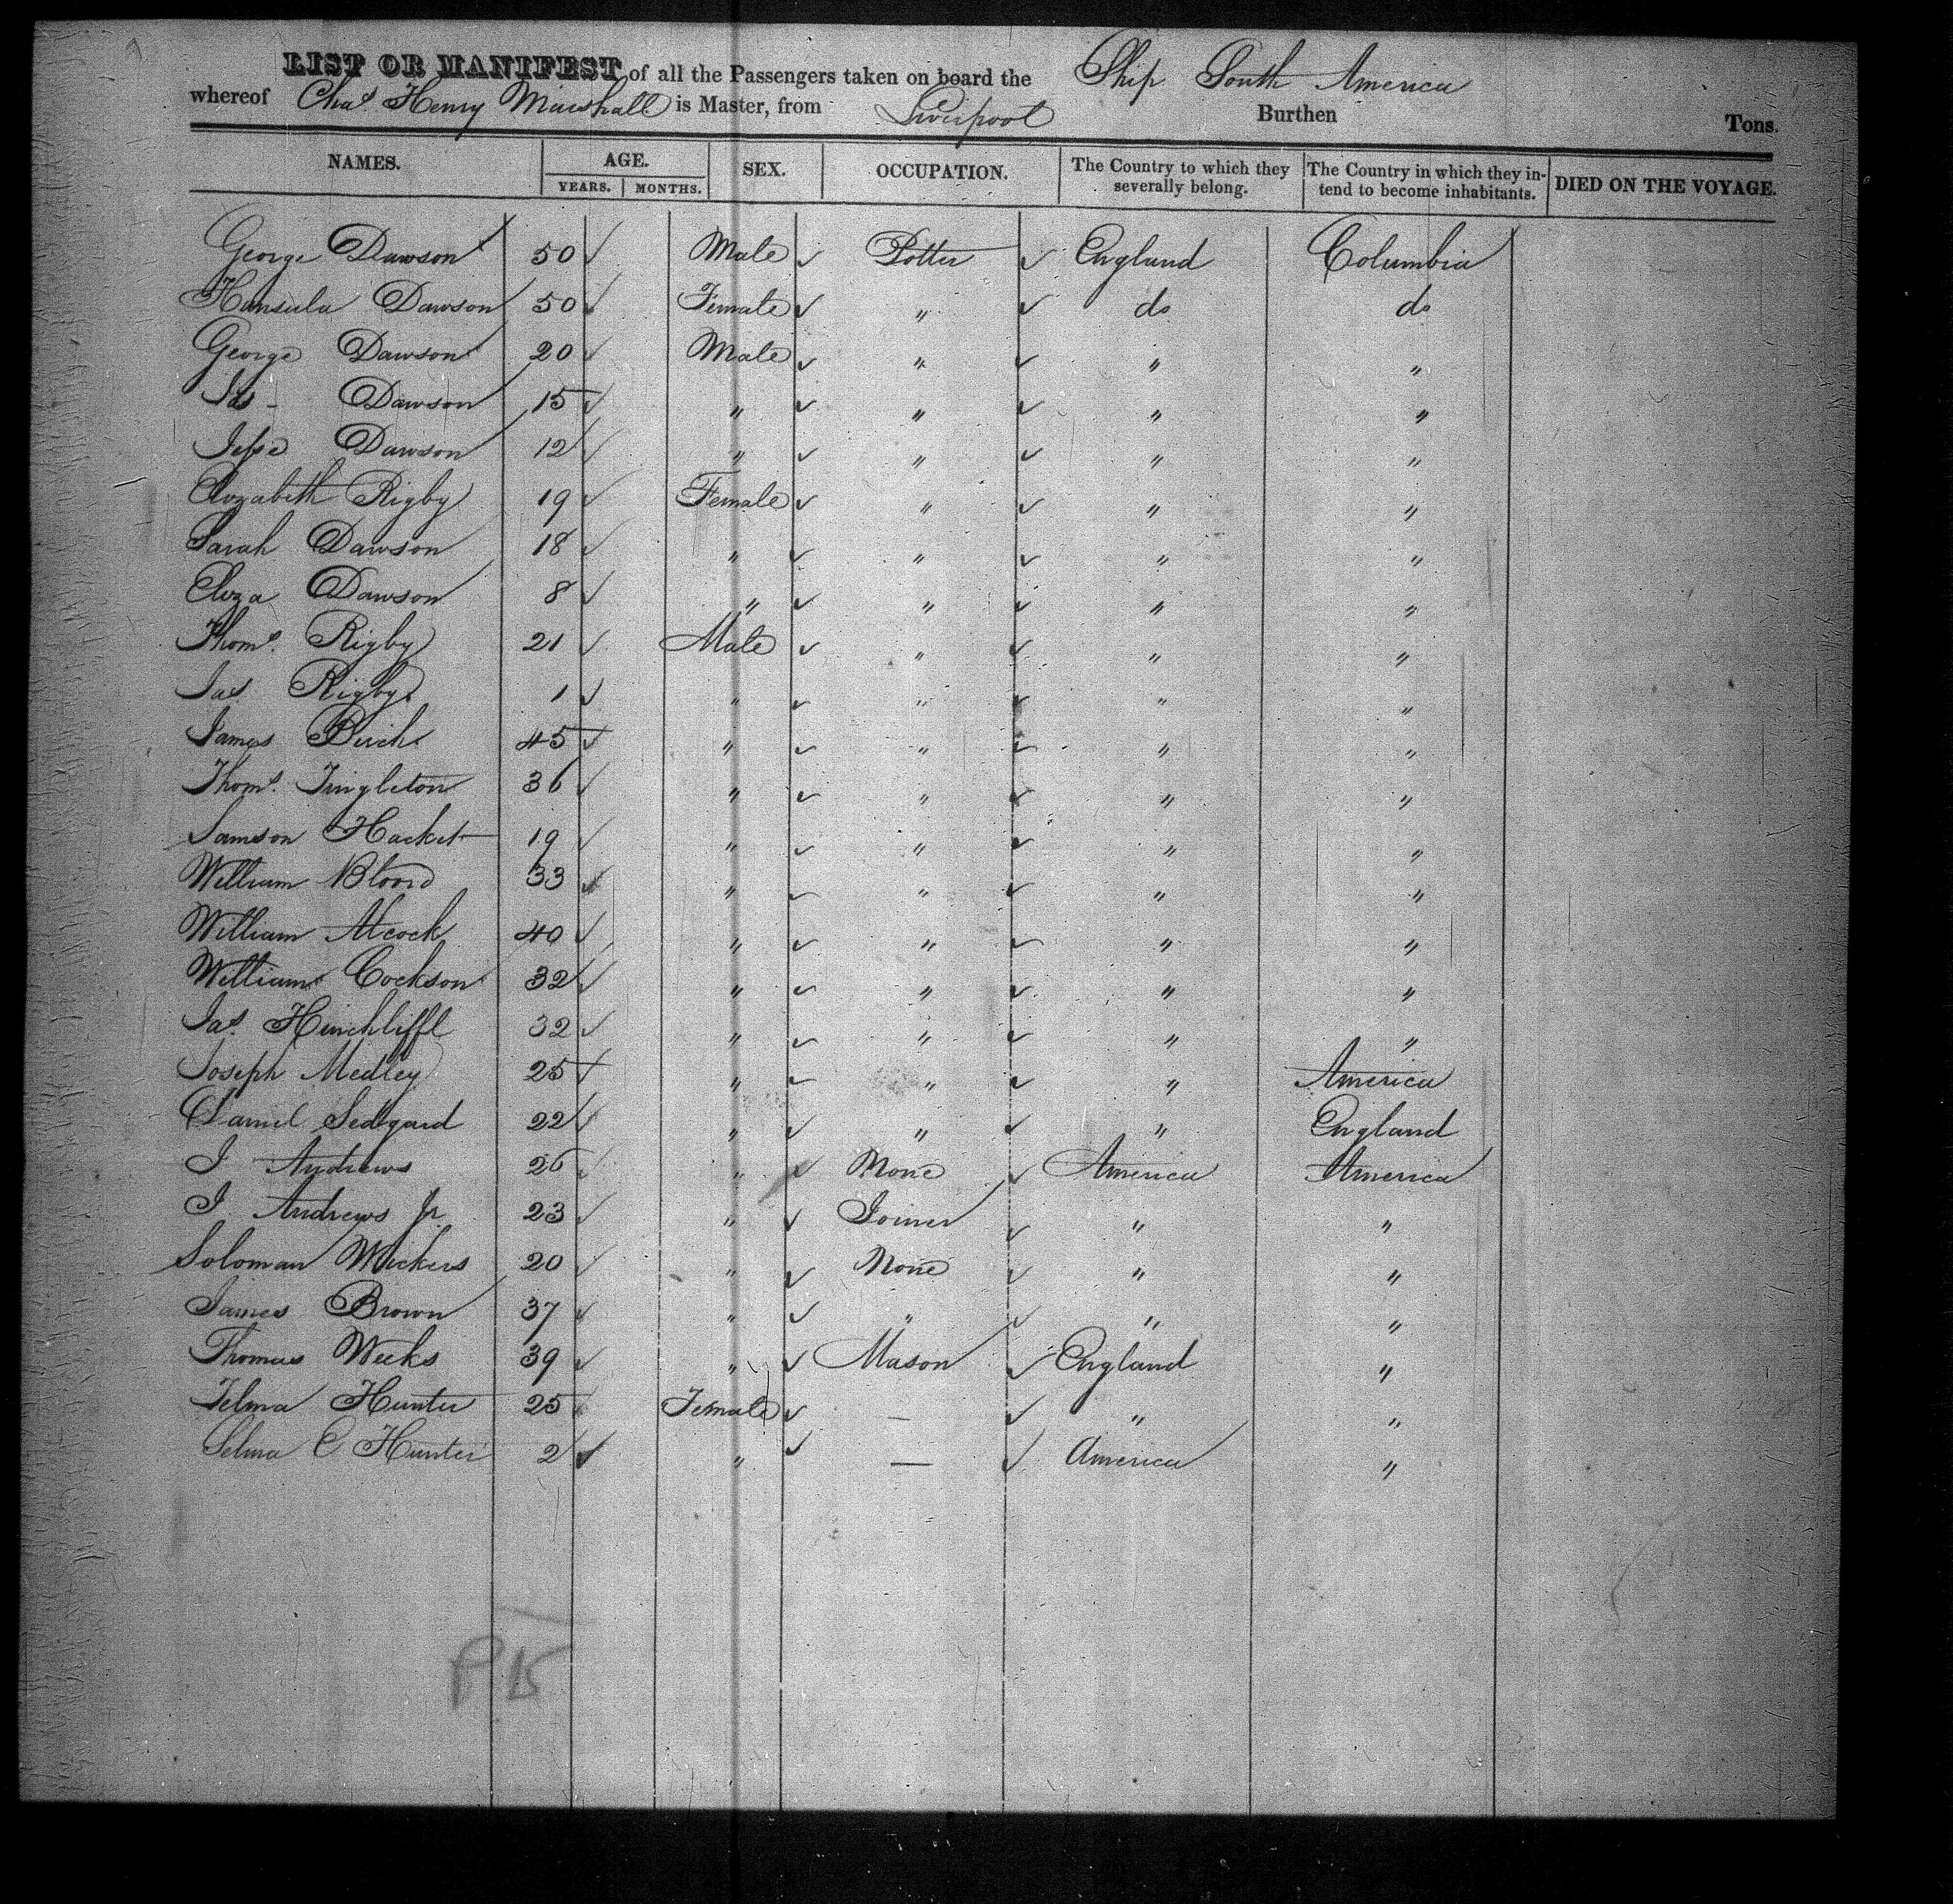 LIST OR MANIFEST of all the Passengers taken on board the Ship South America
whereof Chas Henry Marshall is Master, from Liverpool Burthen Tons.
NAMES. AGE. YEARS. MONTHS. SEX. OCCUPATION. The Country to which they severally belong. The Country in which they intend to become inhabitants. DIED ON THE VOYAGE.
George Dawson 50 Male Potter England Columbia
Dawson 50 Female " do do
George Dawson 20 Male " " "
Jas Dawson 15 " " " "
Jesse Dawson 12 " " " "
Elizabeth Rigby 19 Female " " "
Sarah Dawson 18 " " " "
Eliza Dawson 8 " " " "
Thoms. Rigby 21 Male " " "
Jas Rigby 1 " " " "
James Birch 45 " " " "
Thoms. Singleton 36 " " " "
Samson Hacket 19 " " " "
William Blood 33 " " " "
William Alcock 40 " " " "
William Cockson 32 " " " "
Jas. Hinchliffe 32 " " " "
Joseph Medley 25 " " " America
Daniel Sedgard 22 " " " England
J Andrews 26 " None America America
J Andrews Jr 23 " Joiner " "
Soloman 20 " None " "
James Brown 37 " " " "
Thomas Weeks 39 " Mason England "
Selma Hunter 25 Female — " "
Selma C Hunter 2 " — America "
P 15